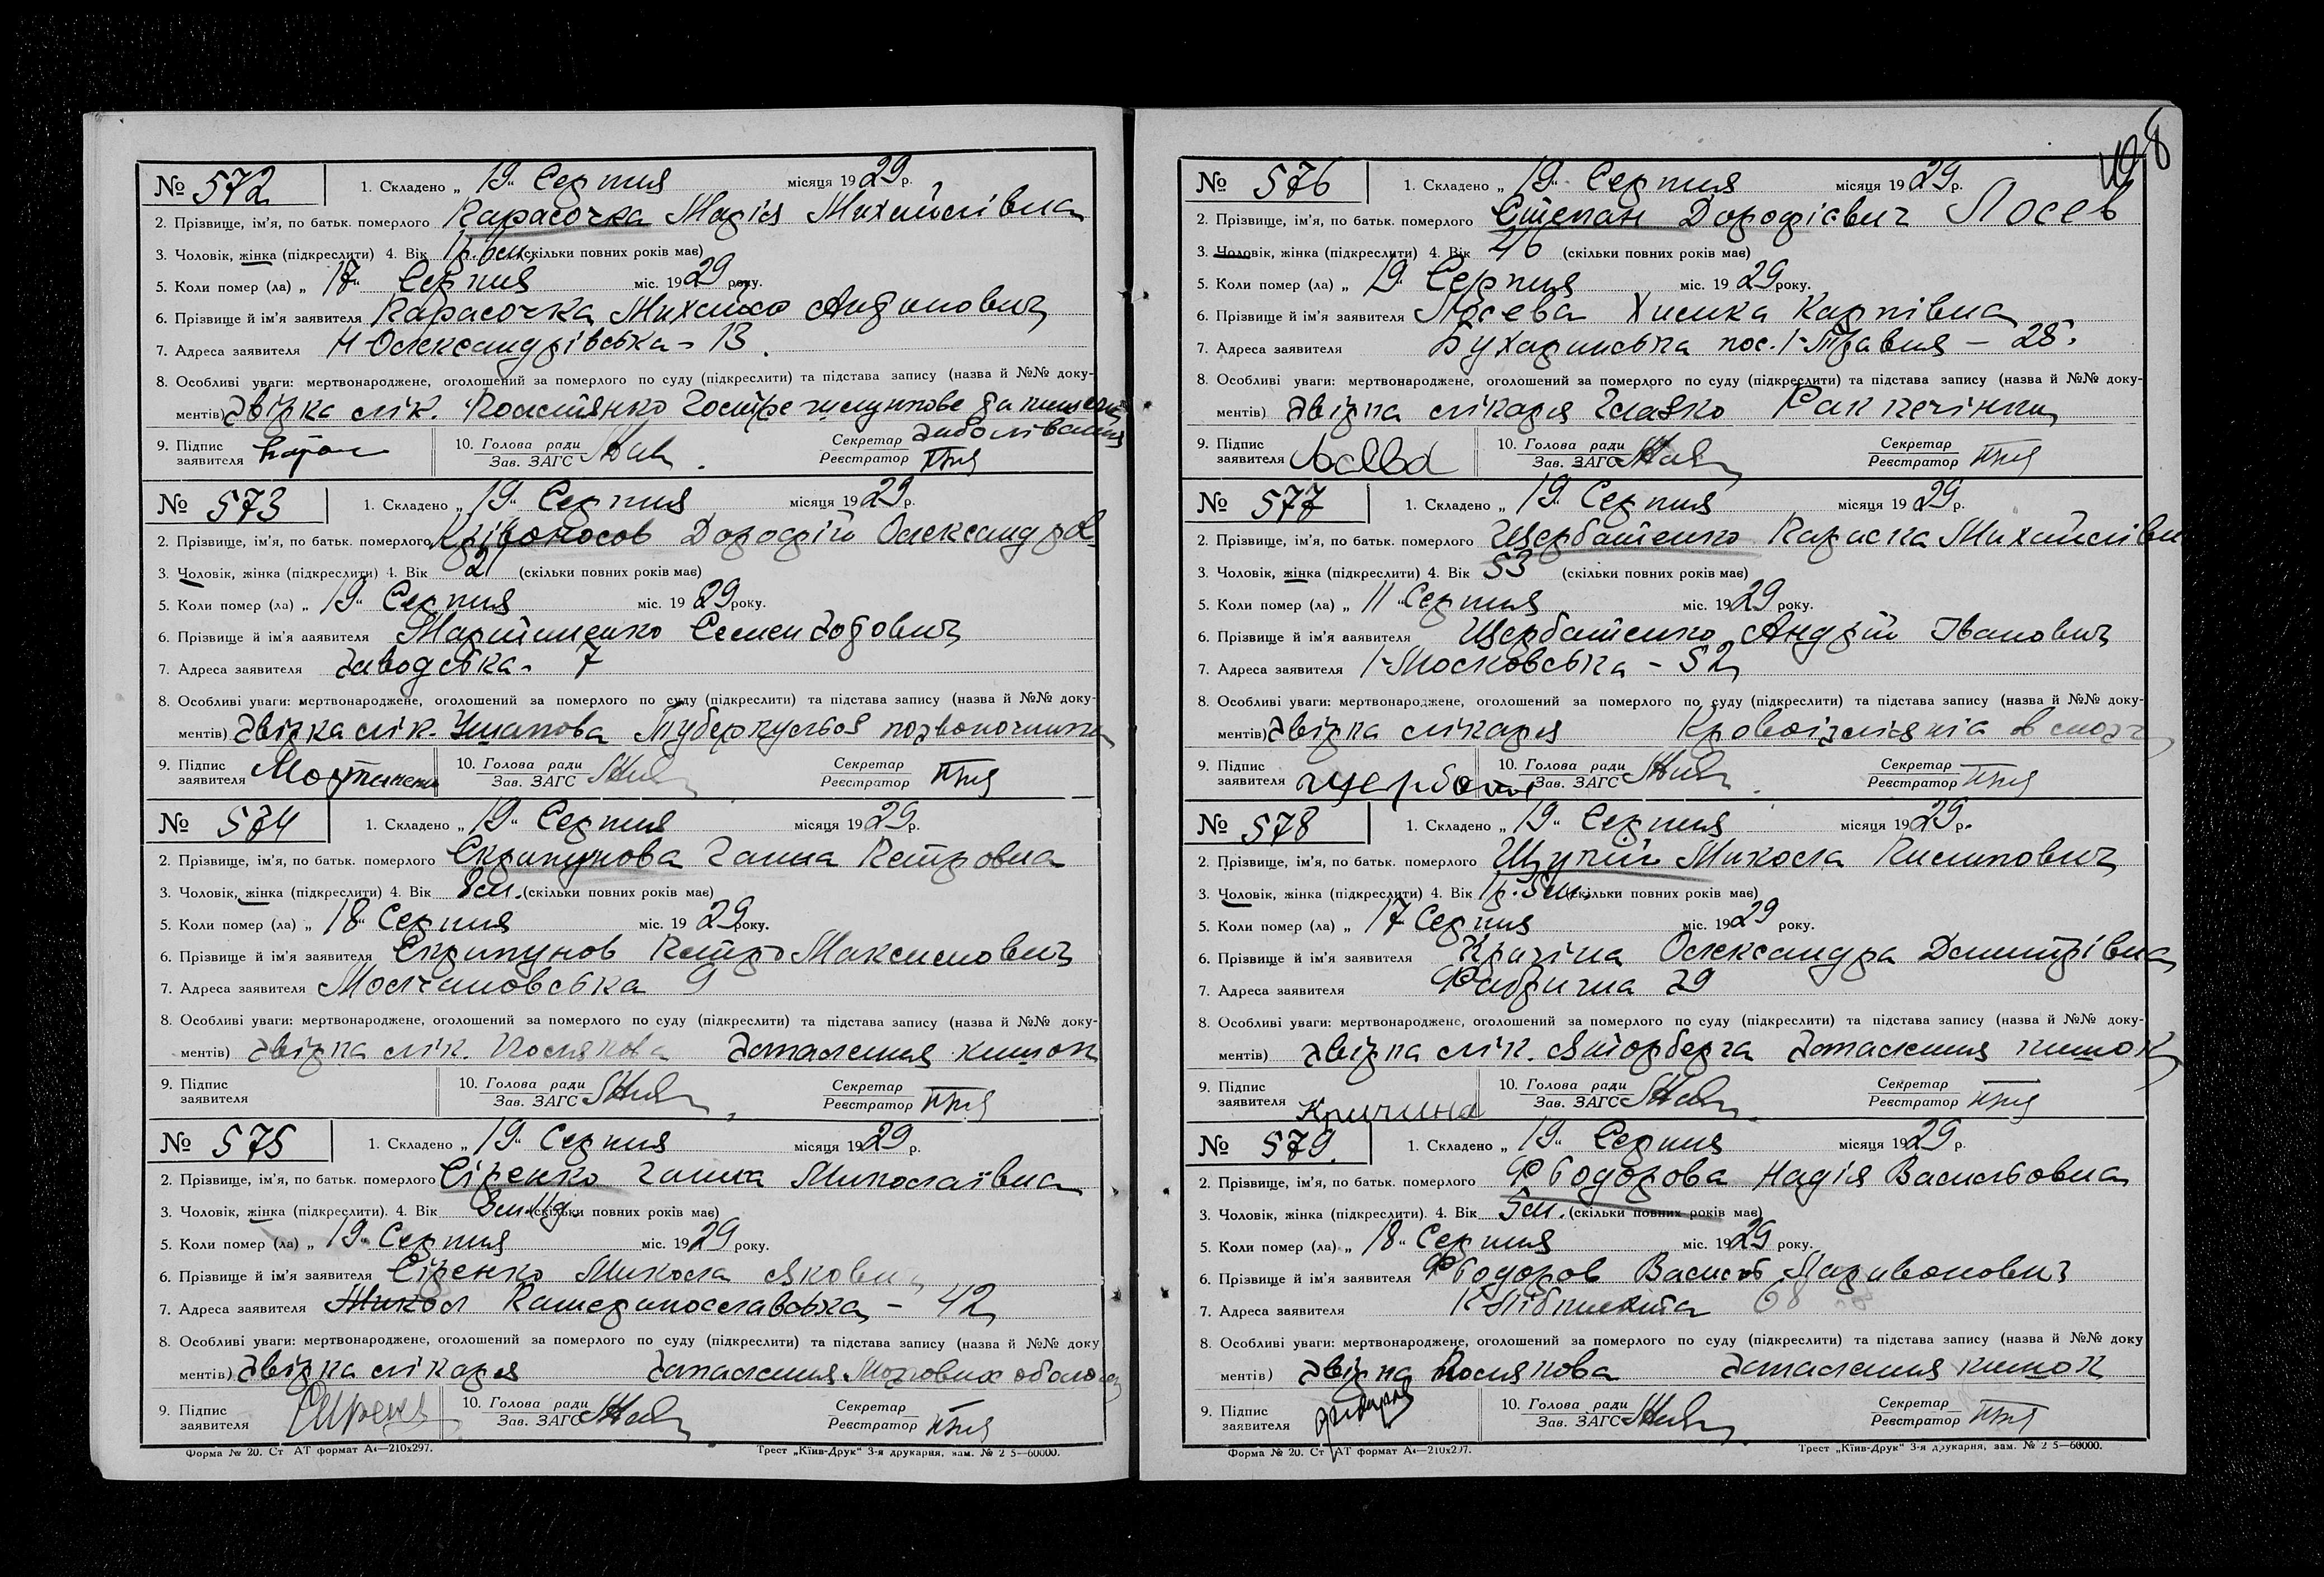 198
№ 572
1. Складено „ 19 “ Серпня місяця 1929 р.
2. Прізвище, ім'я, по батьк. померлого Карасочка Марія Михайлівна
3. Чоловік, жінка (підкреслити) 4. Вік 1р. 6м. (скільки повних років має)
5. Коли помер (ла) „ 17 “ Серпня міс. 1929 року.
6. Прізвище й ім'я заявителя Карасочка Михайло
7. Адреса заявителя Н-Олександрівська - 13.
8. Особливі уваги: мертвонароджене, оголошений за померлого по суду (підкреслити) та підстава запису (назва й №№ доку-
ментів) Звідка лік. Гостре шлункове та кишечне
захолівання
9. Підпис заявителя
10. Голова ради Зав. ЗАГС
Секретар Реєстратор
№ 573
1. Складено „ 19 “ Серпня місяця 1929 р.
2. Прізвище, ім'я, по батьк. померлого Крівоносов Дорофій Олександров
3. Чоловік, жінка (підкреслити) 4. Вік 21 (скільки повних років має)
5. Коли помер (ла) „ 19 “ Серпня міс. 1929 року.
6. Прізвище й ім'я заявителя Мартиненко Семен
7. Адреса заявителя Заводська - 7
8. Особливі уваги: мертвонароджене, оголошений за померлого по суду (підкреслити) та підстава запису (назва й №№ доку-
ментів) Звідка лік. Ушакова Туберкульоз позвоночника
9. Підпис заявителя Мартиненко
10. Голова ради Зав. ЗАГС
Секретар Реєстратор
№ 574
1. Складено „ 19 “ Серпня місяця 1929 р.
2. Прізвище, ім'я, по батьк. померлого Скрипунова Ганна Петровна
3. Чоловік, жінка (підкреслити) 4. Вік 8м. (скільки повних років має)
5. Коли помер (ла) „ 18 “ Серпня міс. 1929 року.
6. Прізвище й ім'я заявителя Скрипунов Петро Максимович
7. Адреса заявителя Молчановська 9
8. Особливі уваги: мертвонароджене, оголошений за померлого по суду (підкреслити) та підстава запису (назва й №№ доку-
ментів) Звідка лік. Полякова Запалення кишок
9. Підпис заявителя
10. Голова ради Зав. ЗАГС
Секретар Реєстратор
№ 575
1. Складено „ 19 “ Серпня місяця 1929 р.
2. Прізвище, ім'я, по батьк. померлого Сіренко Ганна Миколаївна
3. Чоловік, жінка (підкреслити). 4. Вік 8м. (скільки повних років має)
5. Коли помер (ла) „ 19 “ Серпня міс. 1929 року.
6. Прізвище й ім'я заявителя Сіренко Микола Якович
7. Адреса заявителя Микол Катеринославська - 42
8. Особливі уваги: мертвонароджене, оголошений за померлого по суду (підкреслити) та підстава запису (назва й №№ доку
ментів) Звідка лікаря Запалення Мозкових оболочок
9. Підпис заявителя
10. Голова ради Зав. ЗАГС
Секретар Реєстратор
Форма № 20. Ст АТ формат А4—210х297. Трест „Київ-Друк“ 3-я друкарня, зам. № 2 5—60000.
№ 576
1. Складено „ 19 “ Серпня місяця 1929 р.
2. Прізвище, ім'я, по батьк. померлого Степан Дорофієвич Лосев
3. Чоловік, жінка (підкреслити) 4. Вік 46 (скільки повних років має)
5. Коли помер (ла) „ 19 “ Серпня міс. 1929 року.
6. Прізвище й ім'я заявителя Лосева Химка Карпівна
7. Адреса заявителя Бухаринська пос. 1-Травня - 28.
8. Особливі уваги: мертвонароджене, оголошений за померлого по суду (підкреслити) та підстава запису (назва й №№ доку-
ментів) Звідка лікаря Рак печінки
9. Підпис заявителя
10. Голова ради Зав. ЗАГС
Секретар Реєстратор
№ 577
1. Складено „ 19 “ Серпня місяця 1929 р.
2. Прізвище, ім'я, по батьк. померлого Щербатенко Параска Михайлівн
3. Чоловік, жінка (підкреслити) 4. Вік 53 (скільки повних років має)
5. Коли помер (ла) „ 11 “ Серпня міс. 1929 року.
6. Прізвище й ім'я заявителя Щербатенко Андрій Іванович
7. Адреса заявителя 1-Московська - 52
8. Особливі уваги: мертвонароджене, оголошений за померлого по суду (підкреслити) та підстава запису (назва й №№ доку-
ментів) Звідка лікаря Кровоізліяніа в мозг
9. Підпис заявителя
10. Голова ради Зав. ЗАГС
Секретар Реєстратор
№ 578
1. Складено „ 19 “ Серпня місяця 1929 р.
2. Прізвище, ім'я, по батьк. померлого Щупій Микола Пилипович
3. Чоловік, жінка (підкреслити) 4. Вік 1р. 5м. (скільки повних років має)
5. Коли помер (ла) „ 17 Серпня міс. 1929 року.
6. Прізвище й ім'я заявителя Кричіна Олександра Дмитрівна
7. Адреса заявителя Фабрична 29
8. Особливі уваги: мертвонароджене, оголошений за померлого по суду (підкреслити) та підстава запису (назва й №№ доку-
ментів) Звідка лік. Запалення кишок
9. Підпис заявителя Кричина
10. Голова ради Зав. ЗАГС
Секретар Реєстратор
№ 579
1. Складено „ 19 “ Серпня місяця 1929 р.
2. Прізвище, ім'я, по батьк. померлого Фьодорова Надія Васильовна
3. Чоловік, жінка (підкреслити). 4. Вік 5м. (скільки повних років має)
5. Коли помер (ла) „ 18 “ Серпня міс. 1929 року.
6. Прізвище й ім'я заявителя Фьодоров Василь Ларивонович
7. Адреса заявителя К Лібкнехта 68
8. Особливі уваги: мертвонароджене, оголошений за померлого по суду (підкреслити) та підстава запису (назва й №№ доку
ментів) Звідка Полякова Запалення кишок
9. Підпис заявителя
10. Голова ради Зав. ЗАГС
Секретар Реєстратор
Форма № 20. Ст АТ формат А4—210х297. Трест „Київ-Друк“ 3-я друкарня, зам. № 2 5—60000.